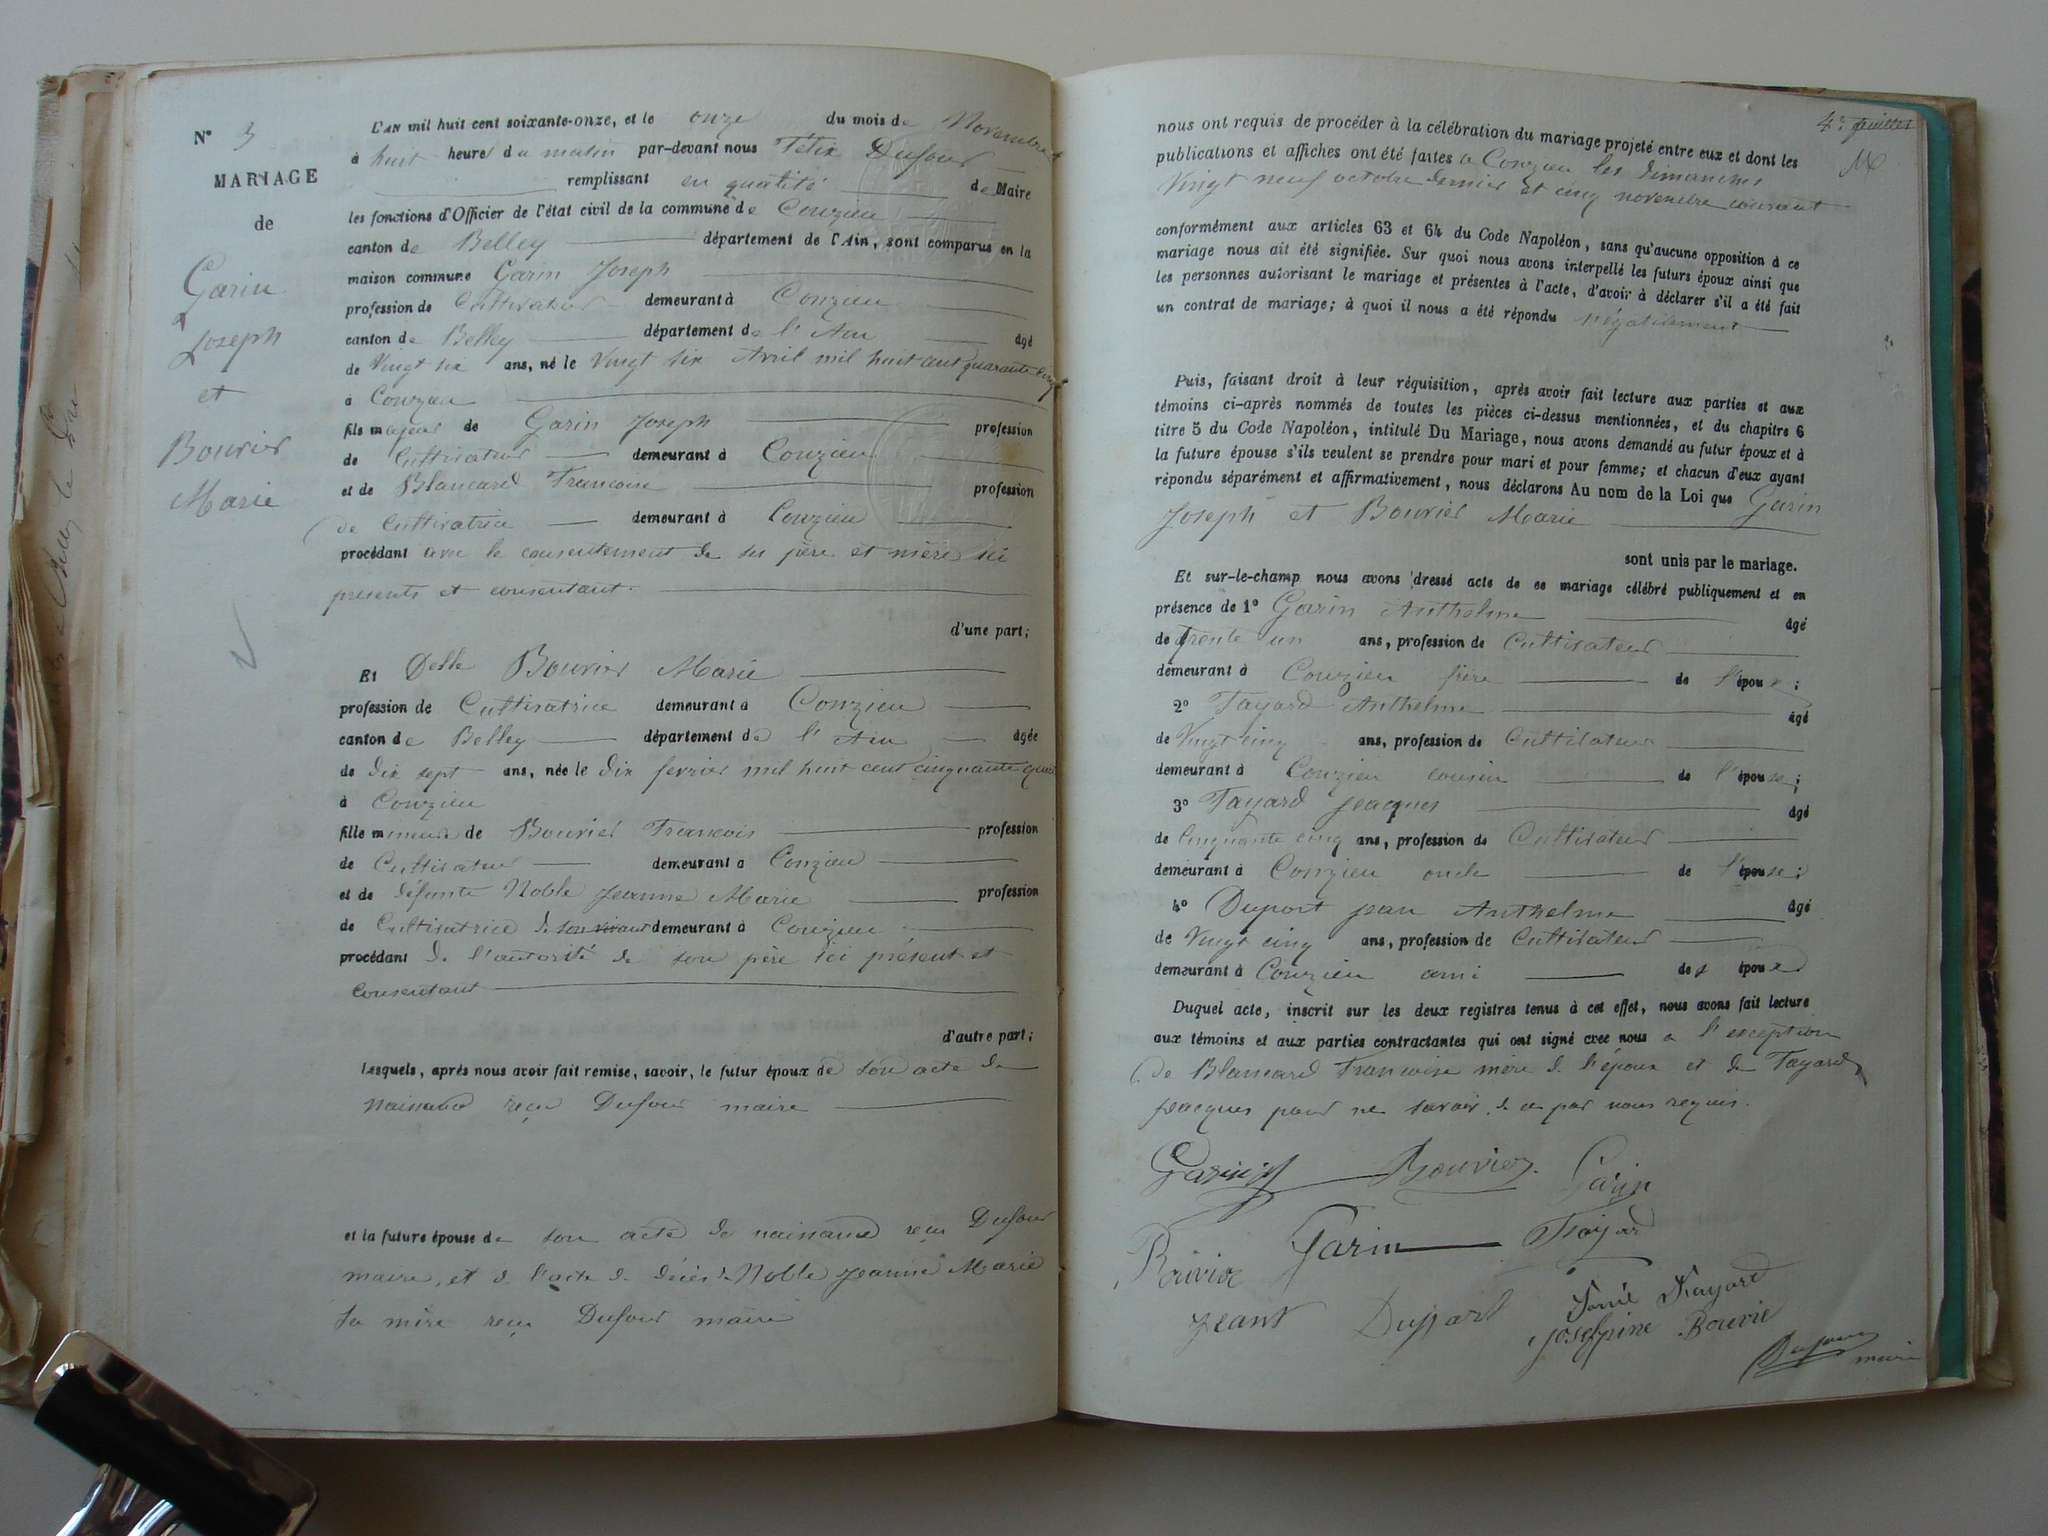 N° 3
MARIAGE
de
Garin
Joseph
et
Bouvier
Marie
L'AN mil huit cent soixante-onze, et le onze du mois de Novembre
à huit heures du matin par-devant nous Félix Dufour
remplissant en qualité de Maire
les fonctions d'Officier de l'état civil de la commune de Conzieu
canton de Belley département de l'Ain, sont comparus en la
maison commune Garin Joseph
profession de Cultivateur demeurant à Conzieu
canton de Belley département de l'Ain âgé
de Vingt six ans, né le Vingt six Avril mil huit cent quarante cinq
à Conzieu
fils majeur de Garin Joseph profession
de Cultivateur demeurant à Conzieu
et de Blancard Francoise profession
de Cultivatrice demeurant à Conzieu
procédant avec le consentement de ses père et mère ici
présents et consentant.
d'une part;
Et Delle Bouvier Marie
profession de Cultivatrice demeurant à Conzieu
canton de Belley département de l'Ain âgée
de dix sept ans, née le dix fevrier mil huit cent cinquante quatre
à Conzieu
fille mineure de Bouvier Francois profession
de Cultivateur demeurant à Conzieu
et de défunte Noble Jeanne Marie profession
de Cultivatrice de son vivant demeurant à Conzieu
procédant de l'autorité de son père ici présent et
consentant
d'autre part;
lesquels, après nous avoir fait remise, savoir, le futur époux de son acte de
naissance reçu Dufour maire
et la future épouse de son acte de naissance reçu Dufour
maire, et de l'acte de décès de Noble Jeanne Marie
sa mère reçu Dufour maire
4e feuillet
nous ont requis de procéder à la célébration du mariage projeté entre eux et dont les
publications et affiches ont été faites à Conzieu les dimanches
Vingt neuf octobre dernier et cinq novembre courant
conformément aux articles 63 et 64 du Code Napoléon, sans qu'aucune opposition à ce
mariage nous ait été signifiée. Sur quoi nous avons interpellé les futurs époux ainsi que
les personnes autorisant le mariage et présentes à l'acte, d'avoir à déclarer s'il a été fait
un contrat de mariage; à quoi il nous a été répondu négativement
Puis, faisant droit à leur réquisition, après avoir fait lecture aux parties et aux
témoins ci-après nommés de toutes les pièces ci-dessus mentionnées, et du chapitre 6
titre 5 du Code Napoléon, intitulé Du Mariage, nous avons demandé au futur époux et à
la future épouse s'ils veulent se prendre pour mari et pour femme; et chacun d'eux ayant
répondu séparément et affirmativement, nous déclarons Au nom de la Loi que Garin
Joseph et Bouvier Marie
sont unis par le mariage.
Et sur-le-champ nous avons dressé acte de ce mariage célébré publiquement et en
présence de 1° Garin Anthelme âgé
de Trente un ans, profession de Cultivateur
demeurant à Conzieu frère de l'époux;
2° Fayard Anthelme âgé
de Vingt cinq ans, profession de Cultivateur
demeurant à Conzieu cousin de l'épouse;
3° Fayard Jeacques âgé
de Cinquante cinq ans, profession de Cultivateur
demeurant à Conzieu oncle de l'épouse;
4° Duport Jean Anthelme âgé
de Vingt cinq ans, profession de Cultivateur
demeurant à Conzieu ami des époux
Duquel acte, inscrit sur les deux registres tenus à cet effet, nous avons fait lecture
aux témoins et aux parties contractantes qui ont signé avec nous a l'exception
de Blancard Francoise mère de l'époux et de Fayard
Jeacques pour ne savoir de ce par nous requis.
Garin J Bouvier Garin
Bouvier Garin Fayard
Jeant Dupart Fayard
Josephine Bouvie
Dufour maire